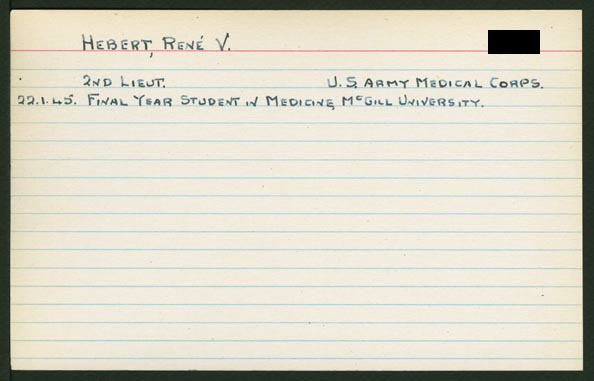 HEBERT, RENÉ V.
2ND LIEUT. U.S. ARMY MEDICAL CORPS.
22.1.45. FINAL YEAR STUDENT IN MEDICINE, McGILL UNIVERSITY.